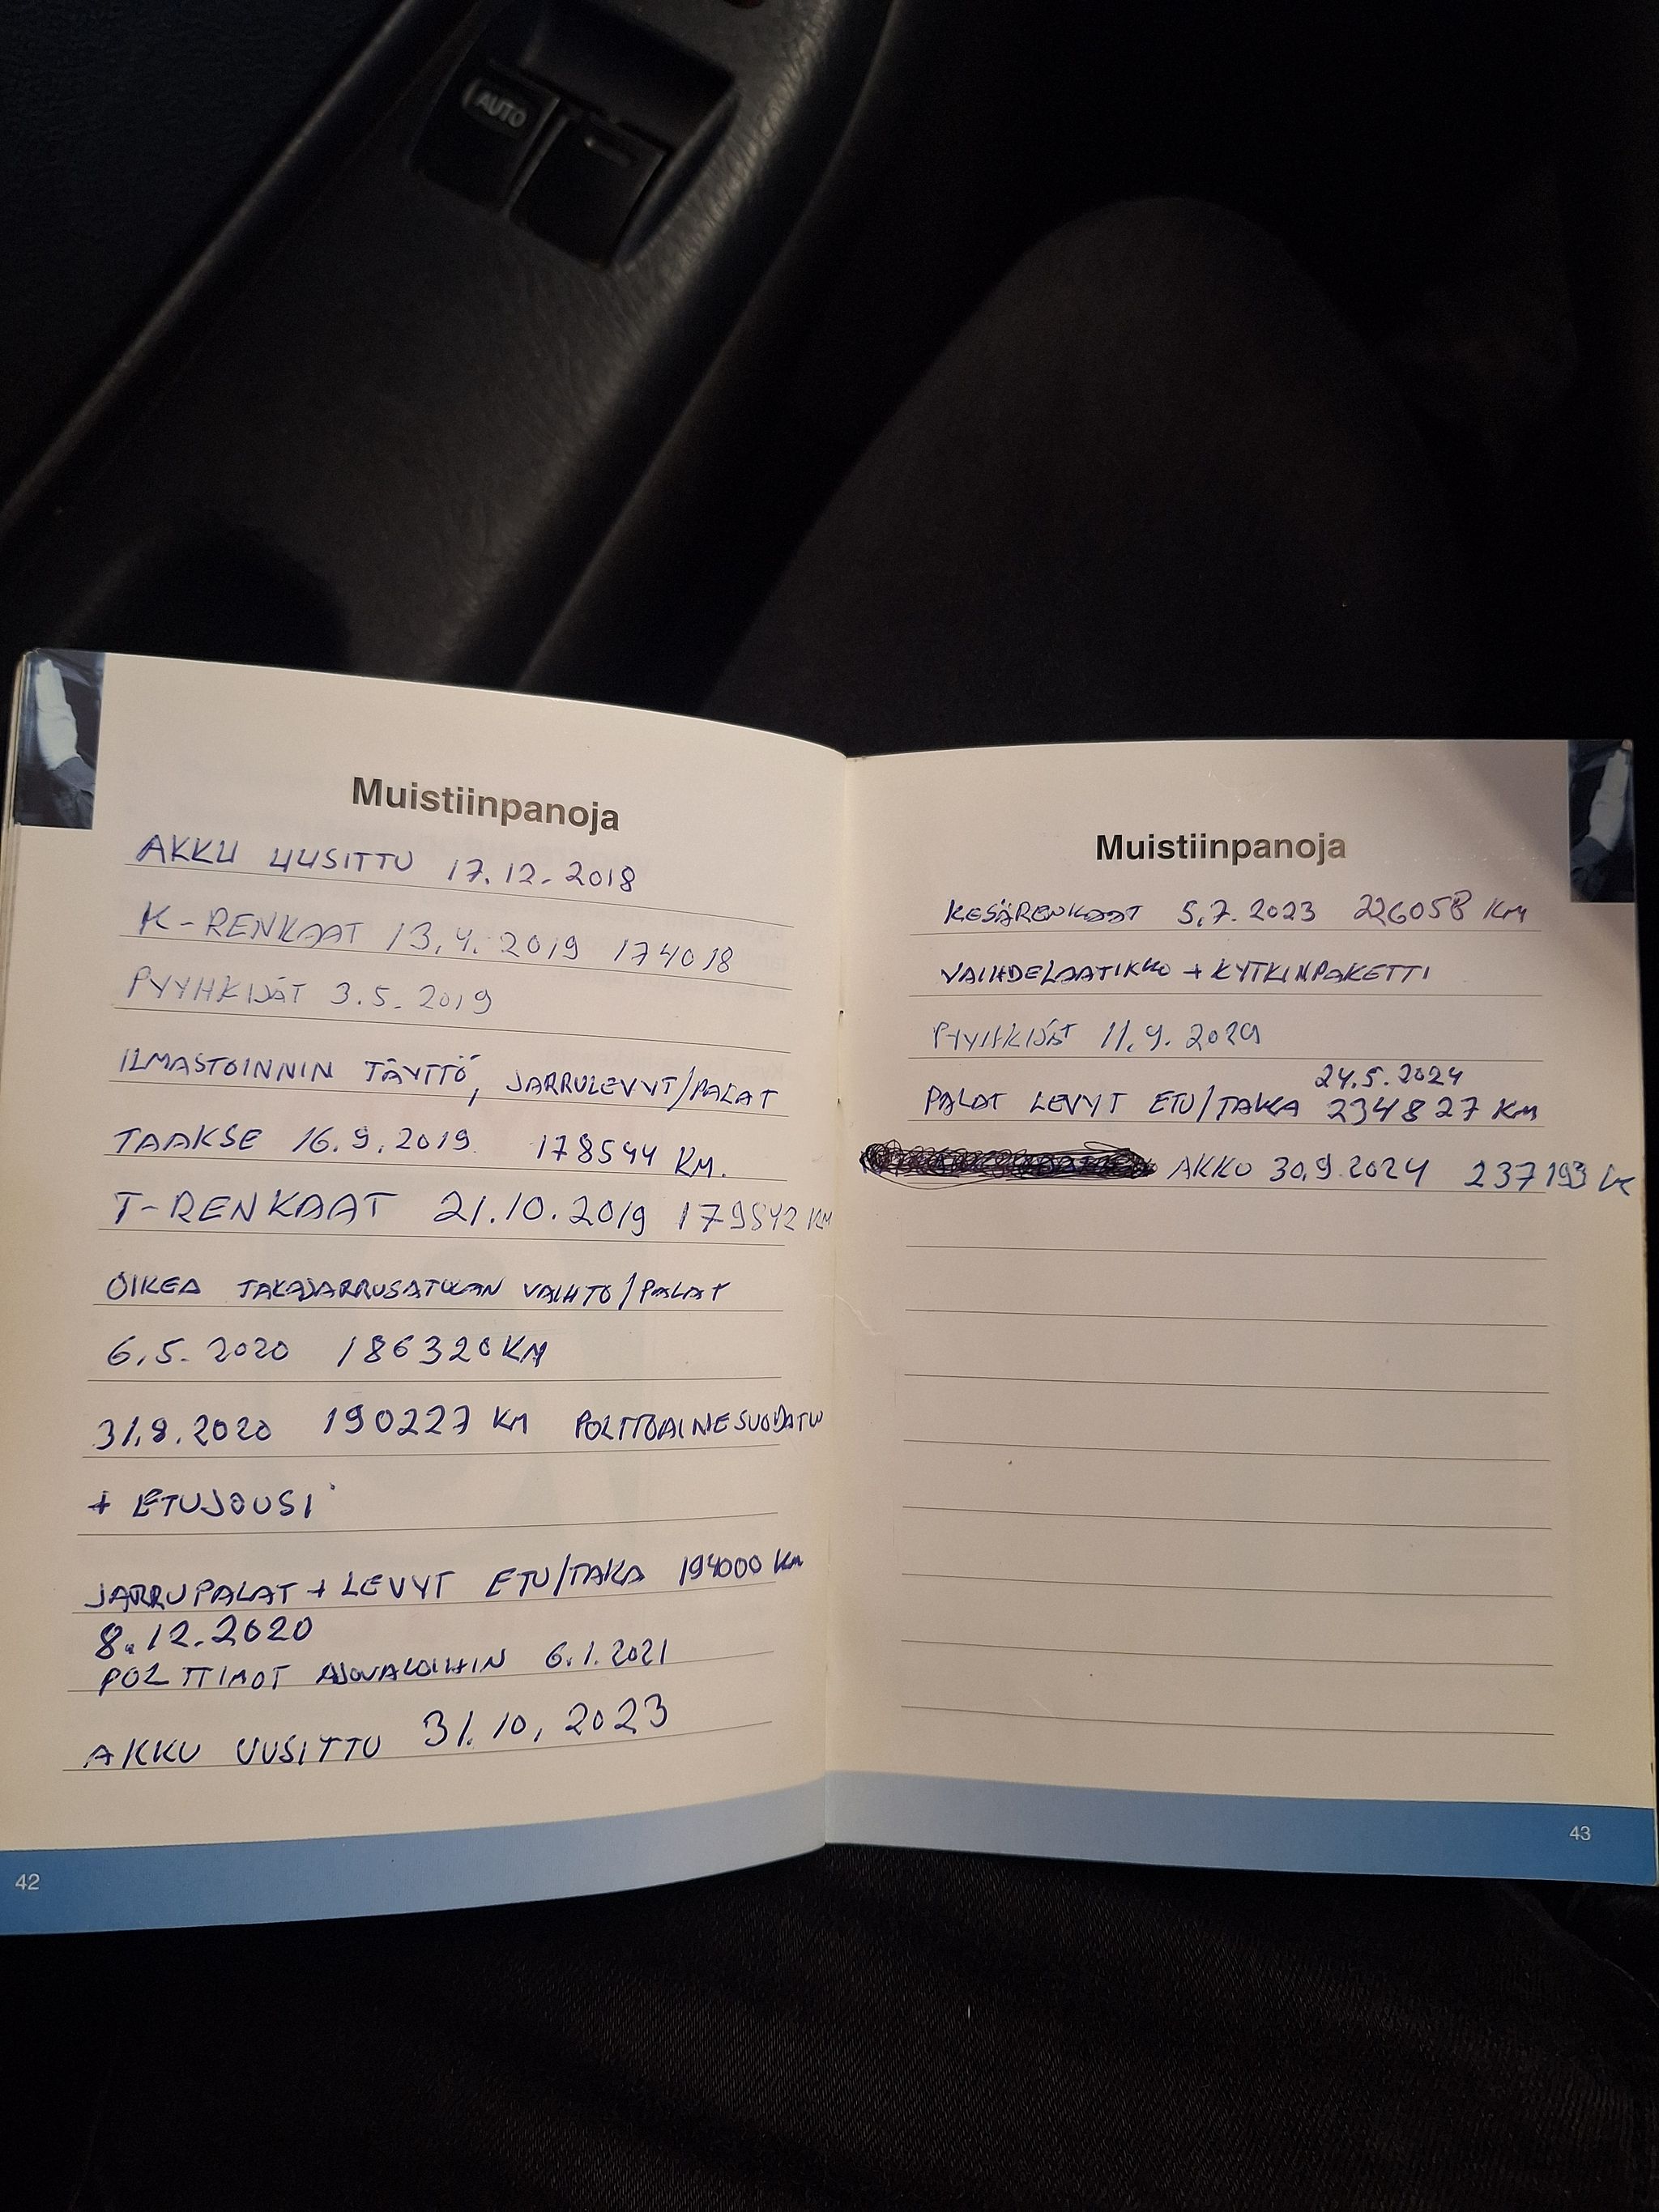 AUTO
Muistiinpanoja
AKKU UUSITTU 17.12.2018
K-RENKAAT 13.4.2019 174018
PYYHKIJÄT 3.5.2019
ILMASTOINNIN TÄYTTÖ, JARRULEVYT/PALAT
TAAKSE 16.9.2019 178544 KM.
T-RENKAAT 21.10.2019 179542 KM
OIKEA TAKAJARRUSATULAN VAIHTO/PALAT
6.5.2020 186320 KM
31.8.2020 190227 KM POLTTOAINESUODATIN
+ ETUJOUSI
JARRUPALAT + LEVYT ETU/TAKA 194000 KM
8.12.2020
POLTTIMOT AJOVALOIHIN 6.1.2021
AKKU UUSITTU 31.10.2023
42
Muistiinpanoja
KESÄRENKAAT 5.7.2023 226058 KM
VAIHDELAATIKKO + KYTKINPAKETTI
PYYHKIJÄT 11.9.
24.5.2024
PALAT LEVYT ETU/TAKA 234827 KM
AKKU 30.9.2024 237193
43